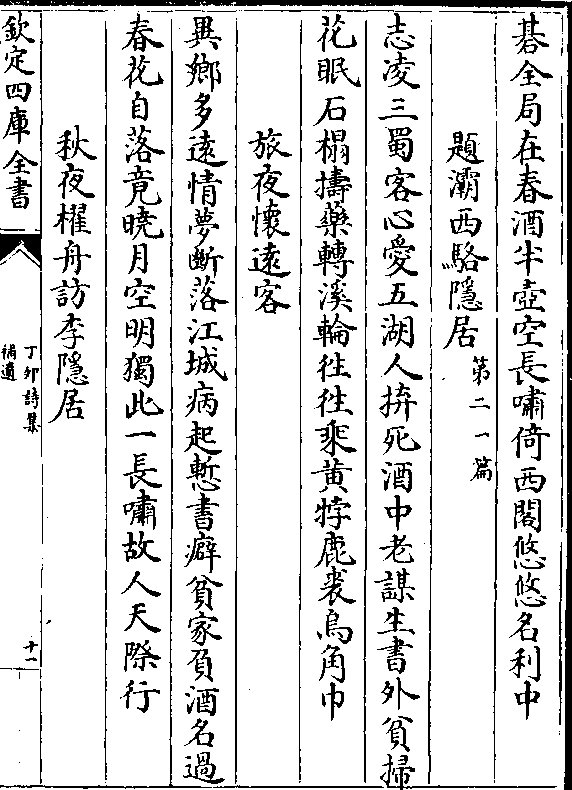 碁全局在春酒半壺空長嘯倚西閣悠悠名利中
題灞西駱隱居第二一篇
志凌三蜀客心愛五湖人拚死酒中老謀生書外貧掃
花眠石榻擣藥轉溪輪徃徃乘黄犢鹿裘烏角巾
旅夜懷遠客
異鄉多遠情夢斷落江城病起慙書癖貧家負酒名過
春花自落竟曉月空明獨此一長嘯故人天際行
秋夜櫂舟訪李隱居
欽定四庫全書
丁卯詩集
補遺
十一